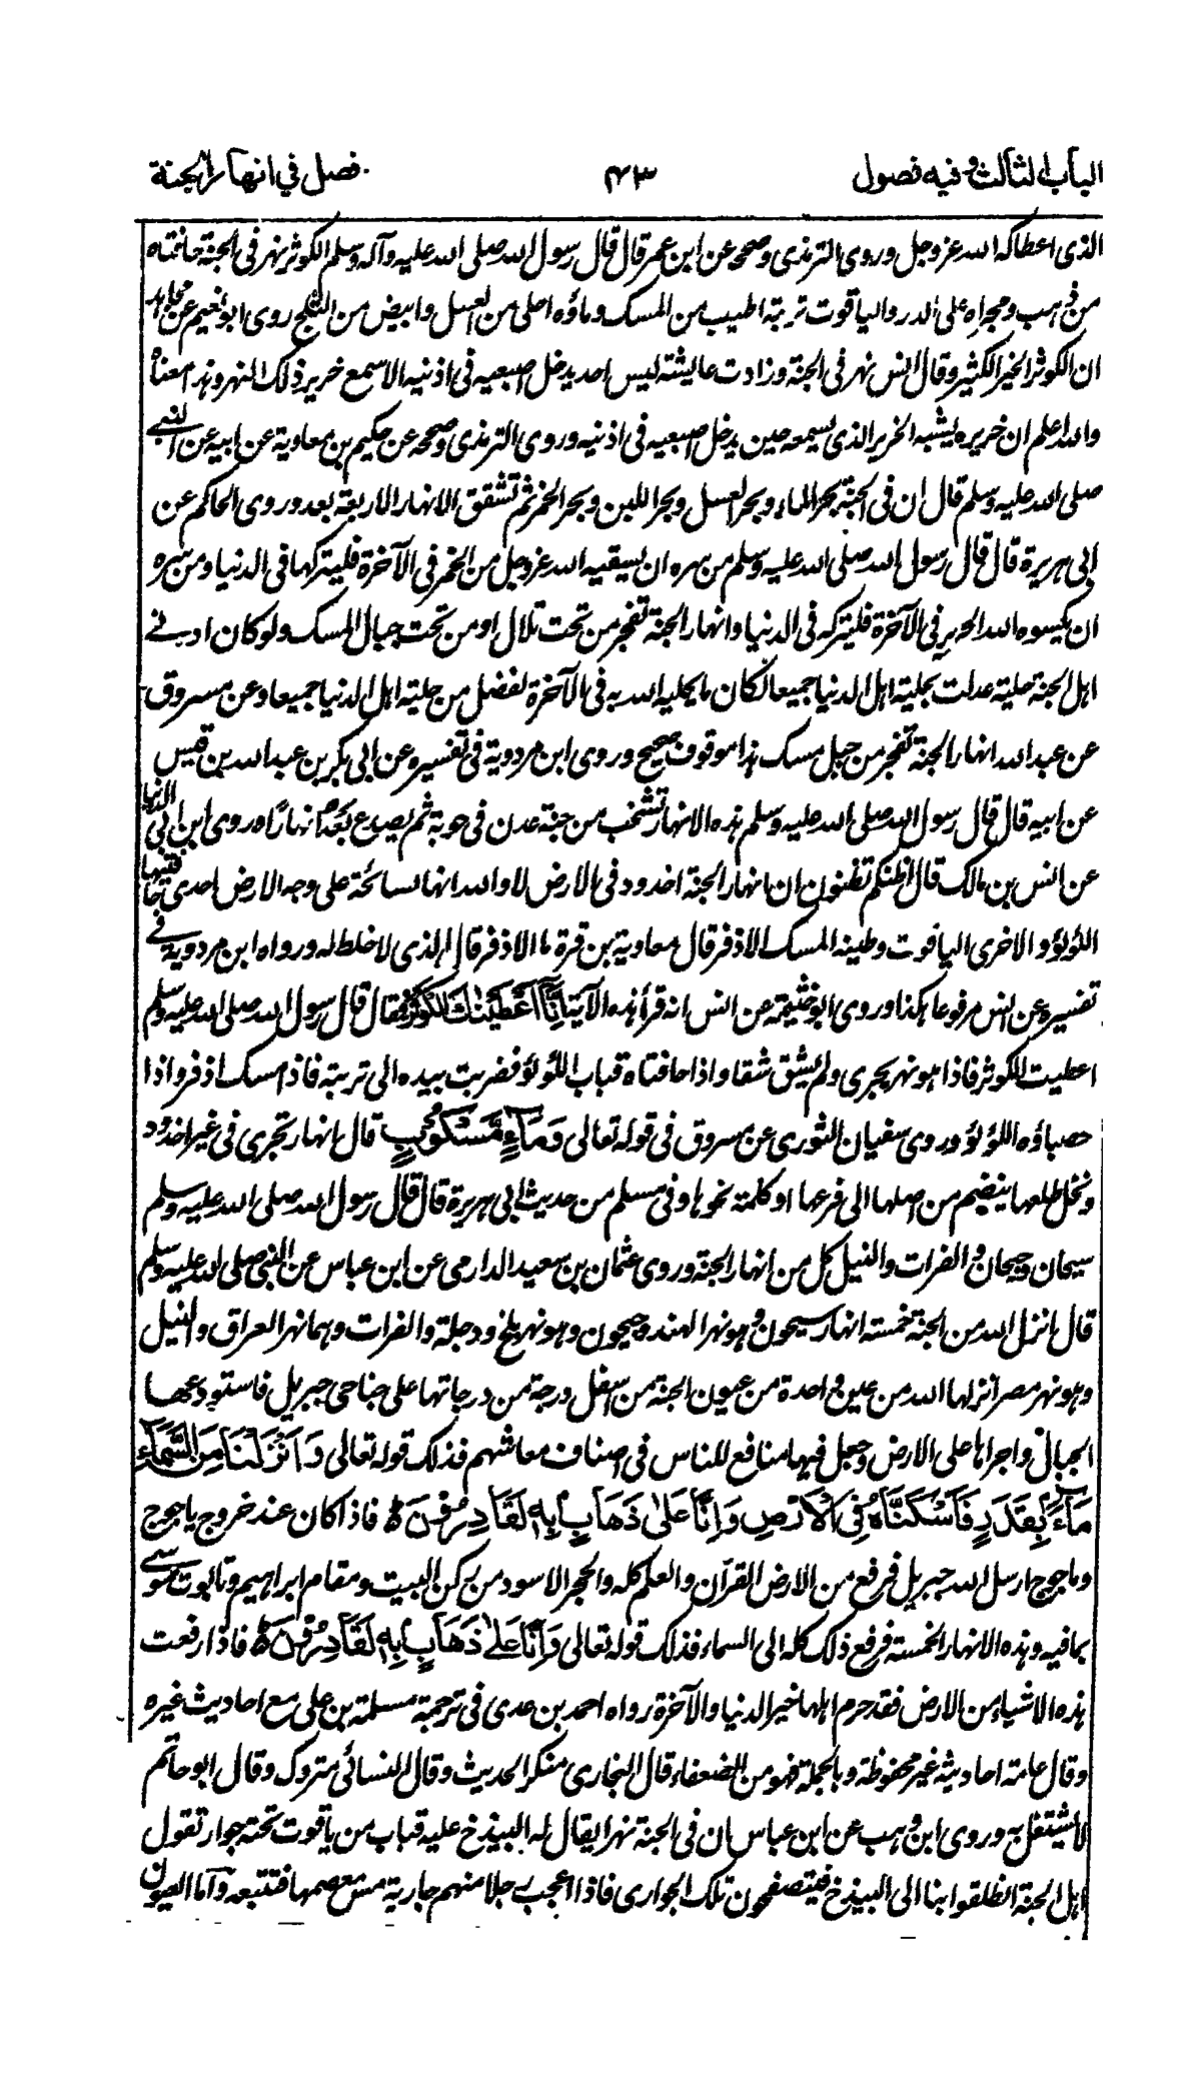 الباب الثالث وفيه فصول ۴۳ فصل في انهار الجنة
الذى اعطاكه الله عز وجل وروى الترمذى وصححه عن ابن عمر قال قال رسول الله صلى الله عليه وآله وسلم الكوثر نهر فى الجنة حافتاه
من ذهب ومجراه على الدر والياقوت تربته اطيب من المسك وماؤه احلى من العسل وابيض من الثلج روى ابو نعيم عن مجاهد
ان الكوثر الخير الكثير وقال انس نهر فى الجنة وزادت عائشة ليس احد يدخل اصبعيه فى اذنيه الا سمع خرير ذلك النهر وهذا معناه
والله اعلم ان خريره يشبه الخرير الذى يسمعه حين يدخل اصبعيه فى اذنيه وروى الترمذى وصححه عن حكيم بن معاوية عن ابيه عن النبى
صلى الله عليه وسلم قال ان فى الجنة بحر الماء وبحر العسل وبحر اللبن وبحر الخمر ثم تشقق الانهار الاربعة بعد وروى الحاكم عن
ابى هريرة قال قال رسول الله صلى الله عليه وسلم من سره ان يسقيه الله عز وجل من الخمر فى الآخرة فليتركها فى الدنيا ومن سره
ان يكسوه الله الحرير فى الآخرة فليتركه فى الدنيا وانهار الجنة تفجر من تحت تلال او من تحت جبال المسك ولو كان ادنى
اهل الجنة حلية عدلت بحلية اهل الدنيا جميعا لكان ما يحليه الله به فى الآخرة افضل من حلية اهل الدنيا جميعا وعن مسروق
عن عبد الله انهار الجنة تفجر من جبل مسك هذا موقوف صحيح وروى ابن مردويه فى تفسيره عن ابى بكر بن عبد الله بن قيس
عن ابيه قال قال رسول الله صلى الله عليه وسلم هذه الانهار تشخب من جنة عدن فى جوبة ثم يصدع بعد انهارًا وروى ابن ابى الدنيا
عن انس بن مالك قال اظنكم تظنون ان انهار الجنة اخدود فى الارض لا والله انها لسائحة على وجه الارض احدى حافتيها
اللؤلؤ والاخرى الياقوت وطينه المسك الاذفر قال معاوية بن قرة ما الاذفر قال الذى لا خلط له ورواه ابن مردويه فى
تفسيره عن انس مرفوعا هكذا وروى ابو خثيمة عن انس انه قرأ هذه الآية اِنَّآ اَعْطَيْنٰكَ الْكَوْثَرَ فقال قال رسول الله صلى الله عليه وسلم
اعطيت الكوثر فاذا هو نهر يجرى ولم يشق شقا واذا حافتاه قباب اللؤلؤ فضربت بيده الى تربته فاذا مسك اذفر واذا
حصباؤه اللؤلؤ وروى سفيان الثورى عن مسروق فى قوله تعالى وَمَآءٍ مَّسْكُوْبٍ قال انهار تجرى فى غير اخدود
ونخل طلعها ينضم من اصلها الى فرعها او كلمة نحوها وفى مسلم من حديث ابى هريرة قال قال رسول الله صلى الله عليه وسلم
سيحان وجيحان والفرات والنيل كل من انهار الجنة وروى عثمان بن سعيد الدارمى عن ابن عباس عن النبى صلى الله عليه وسلم
قال انزل الله من الجنة خمسة انهار سيحون وهو نهر الهند وجيحون وهو نهر بلخ ودجلة والفرات وهما نهر العراق والنيل
وهو نهر مصر انزلها الله من عين واحدة من عيون الجنة من اسفل درجة من درجاتها على جناحى جبريل فاستودعها
الجبال واجراها على الارض وجعل فيها منافع للناس فى اصناف معاشهم فذلك قوله تعالى وَاَنْزَلْنَا مِنَ السَّمَآءِ
مَآءً بِقَدَرٍ فَاَسْكَنَّاهُ فِى الْاَرْضِ وَاِنَّا عَلٰى ذَهَابٍ بِهٖ لَقَادِرُوْنَ ط فاذا كان عند خروج ياجوج
وماجوج ارسل الله جبريل فرفع من الارض القرآن والعلم كله والحجر الاسود من ركن البيت ومقام ابراهيم وتابوت موسى
بما فيه وهذه الانهار الخمسة فرفع ذلك كله الى السماء فذلك قوله تعالى وَاِنَّا عَلٰى ذَهَابٍ بِهٖ لَقَادِرُوْنَ ط فاذا رفعت
هذه الاشياء من الارض فقد حرم اهلها خير الدنيا والآخرة رواه احمد بن عدى فى ترجمة مسلمة بن على مع احاديث غيره
وقال عامة احاديثه غير محفوظة وبالجملة فهو من الضعفاء قال البخارى منكر الحديث وقال النسائى متروك وقال ابو حاتم
لا يشتغل به وروى ابن وهب عن ابن عباس ان فى الجنة نهرا يقال له البيذخ عليه قباب من ياقوت تحته جوار تقول
اهل الجنة انطلقوا بنا الى البيذخ فيتصفحون تلك الجوارى فاذا اعجب رجلا منهم جارية مس معصمها فتتبعه وآما العيون